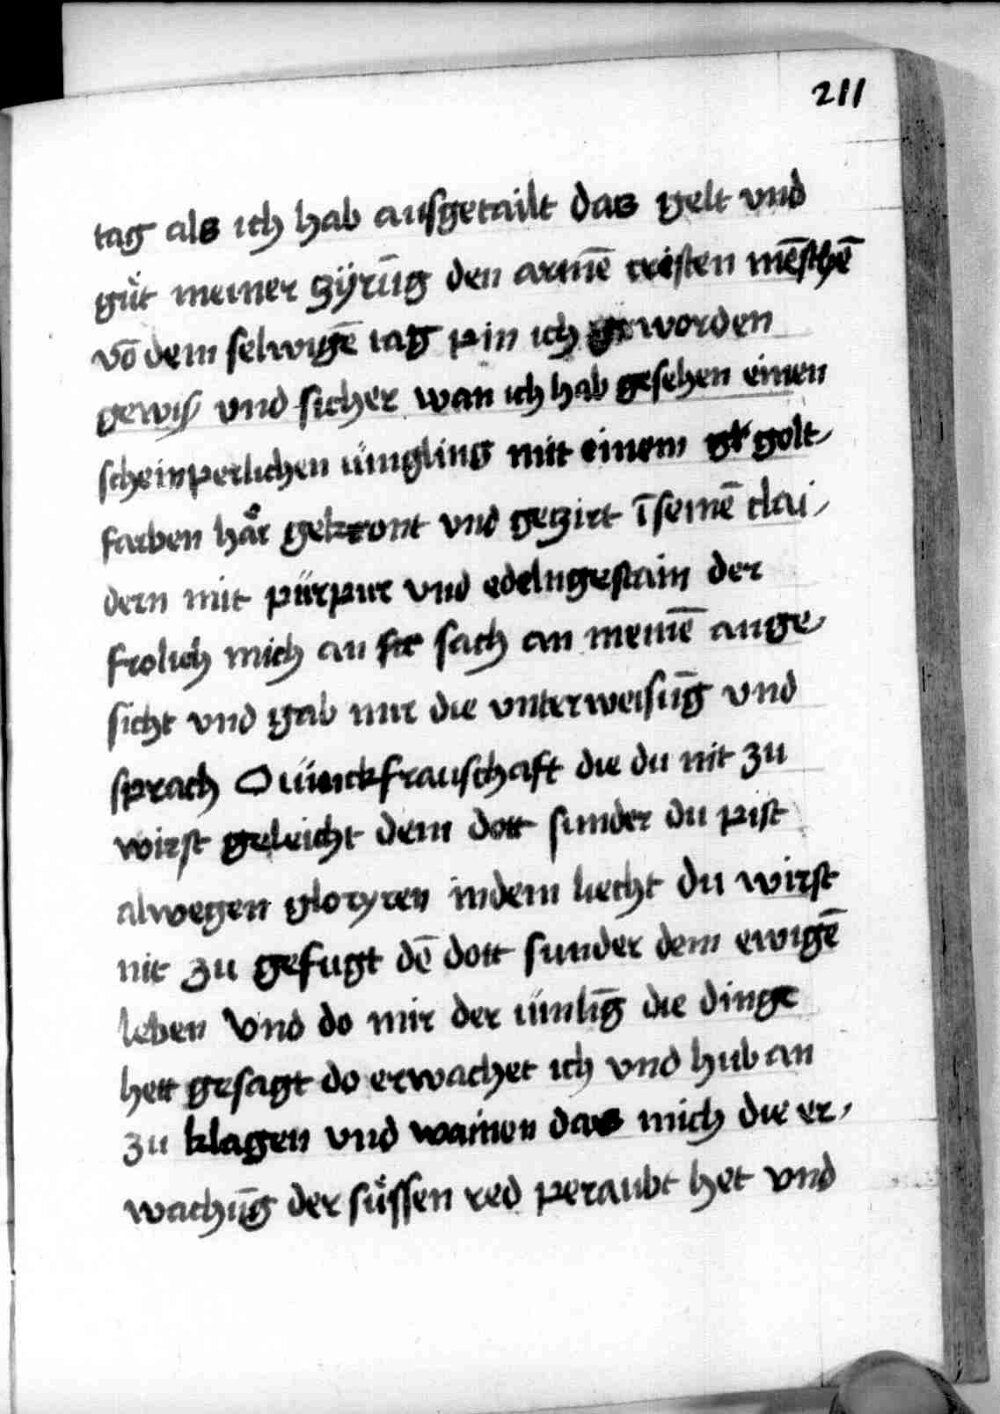 211
tag als ich hab ausgetailt das gelt vnd
gu̍t meiner zÿru̅g den arme̅ cristen me̅sche̅
vo̅ dem selwige̅ tag pin ich geworden
gewiß vnd sicher wan ich hab gesehen einen
scheinperlichen iu̍ngling mit einem golt
farben hår gekront vnd gezirt i̅ seine̅ clai
dern mit pürpur vnd edelngestain der
frolich mich an sach an meine̅ ange
sicht vnd gab mir die vnterweisu̅g vnd
sprach O iünckfrauschaft die du nit zu
wirst geleicht dem dott sunder du pist
alwegen gloryren in dem liecht du wirst
nit zu gefugt de̅ dott sunder dem ewige̅
leben Vnd do mir der iünli̅g die dinge
hett gesagt do erwachet ich vnd hub an
zu klagen vnd wainen das mich die er
wachu̅g der su̍ssen red peraubt het vnd